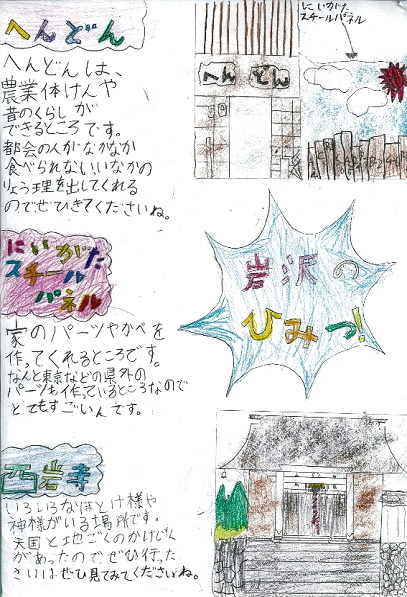 へんどん
へんどんは、
農業体けんや
昔のくらしが
できるところです。
都会の人がなかなか
食べられないいなかの
りょう理を出してくれる
のでぜひきてくださいね。
へん どん
にいがた
スチールパネル
岩沢の
ひみつ!
にいがた
スチール
パネル
家のパーツやかべを
作ってくれるところです。
なんと東京などの県外の
パーツも作っているところなので
とてもすごいんです。
西岩寺
いろいろなほとけ様や
神様がいる場所です。
天国と地ごくのかけじく
があったのでぜひ行った
さいはぜひ見てみてくださいね。